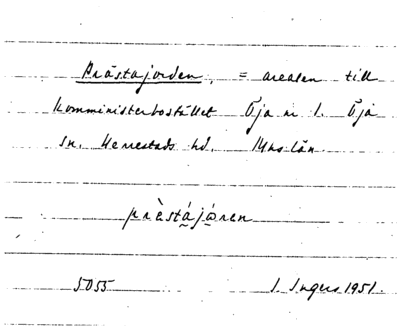 Prästajorden, = arealen till
komministerbostället Öja nr 1. Öja
sn. Herrestads hd. Mhs län.
prästájoren
5055 I. Ingers 1951.